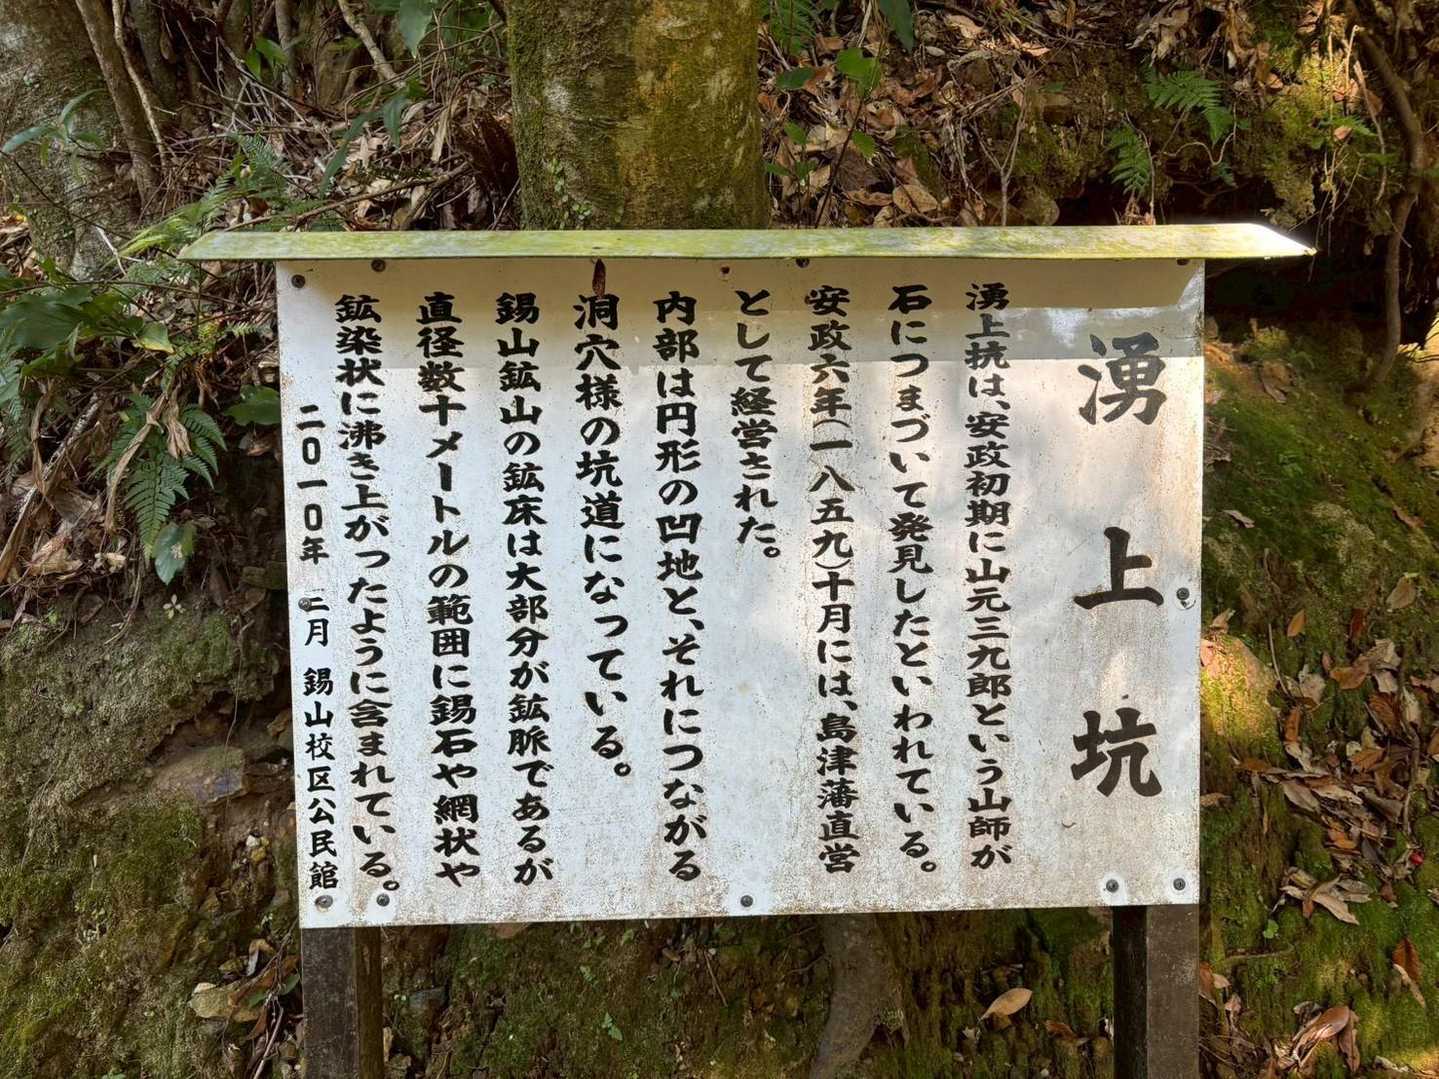 湧上坑
湧上抗は、安政初期に山元三九郎という山師が
石につまづいて発見したといわれている。
安政六年(一八五九)十月には、島津藩直営
として経営された。
内部は円形の凹地と、それにつながる
洞穴様の坑道になっている。
錫山鉱山の鉱床は大部分が鉱脈であるが
直径数十メートルの範囲に錫石や網状や
鉱染状に沸き上がったように含まれている。
二〇一〇年 二月 錫山校区公民館